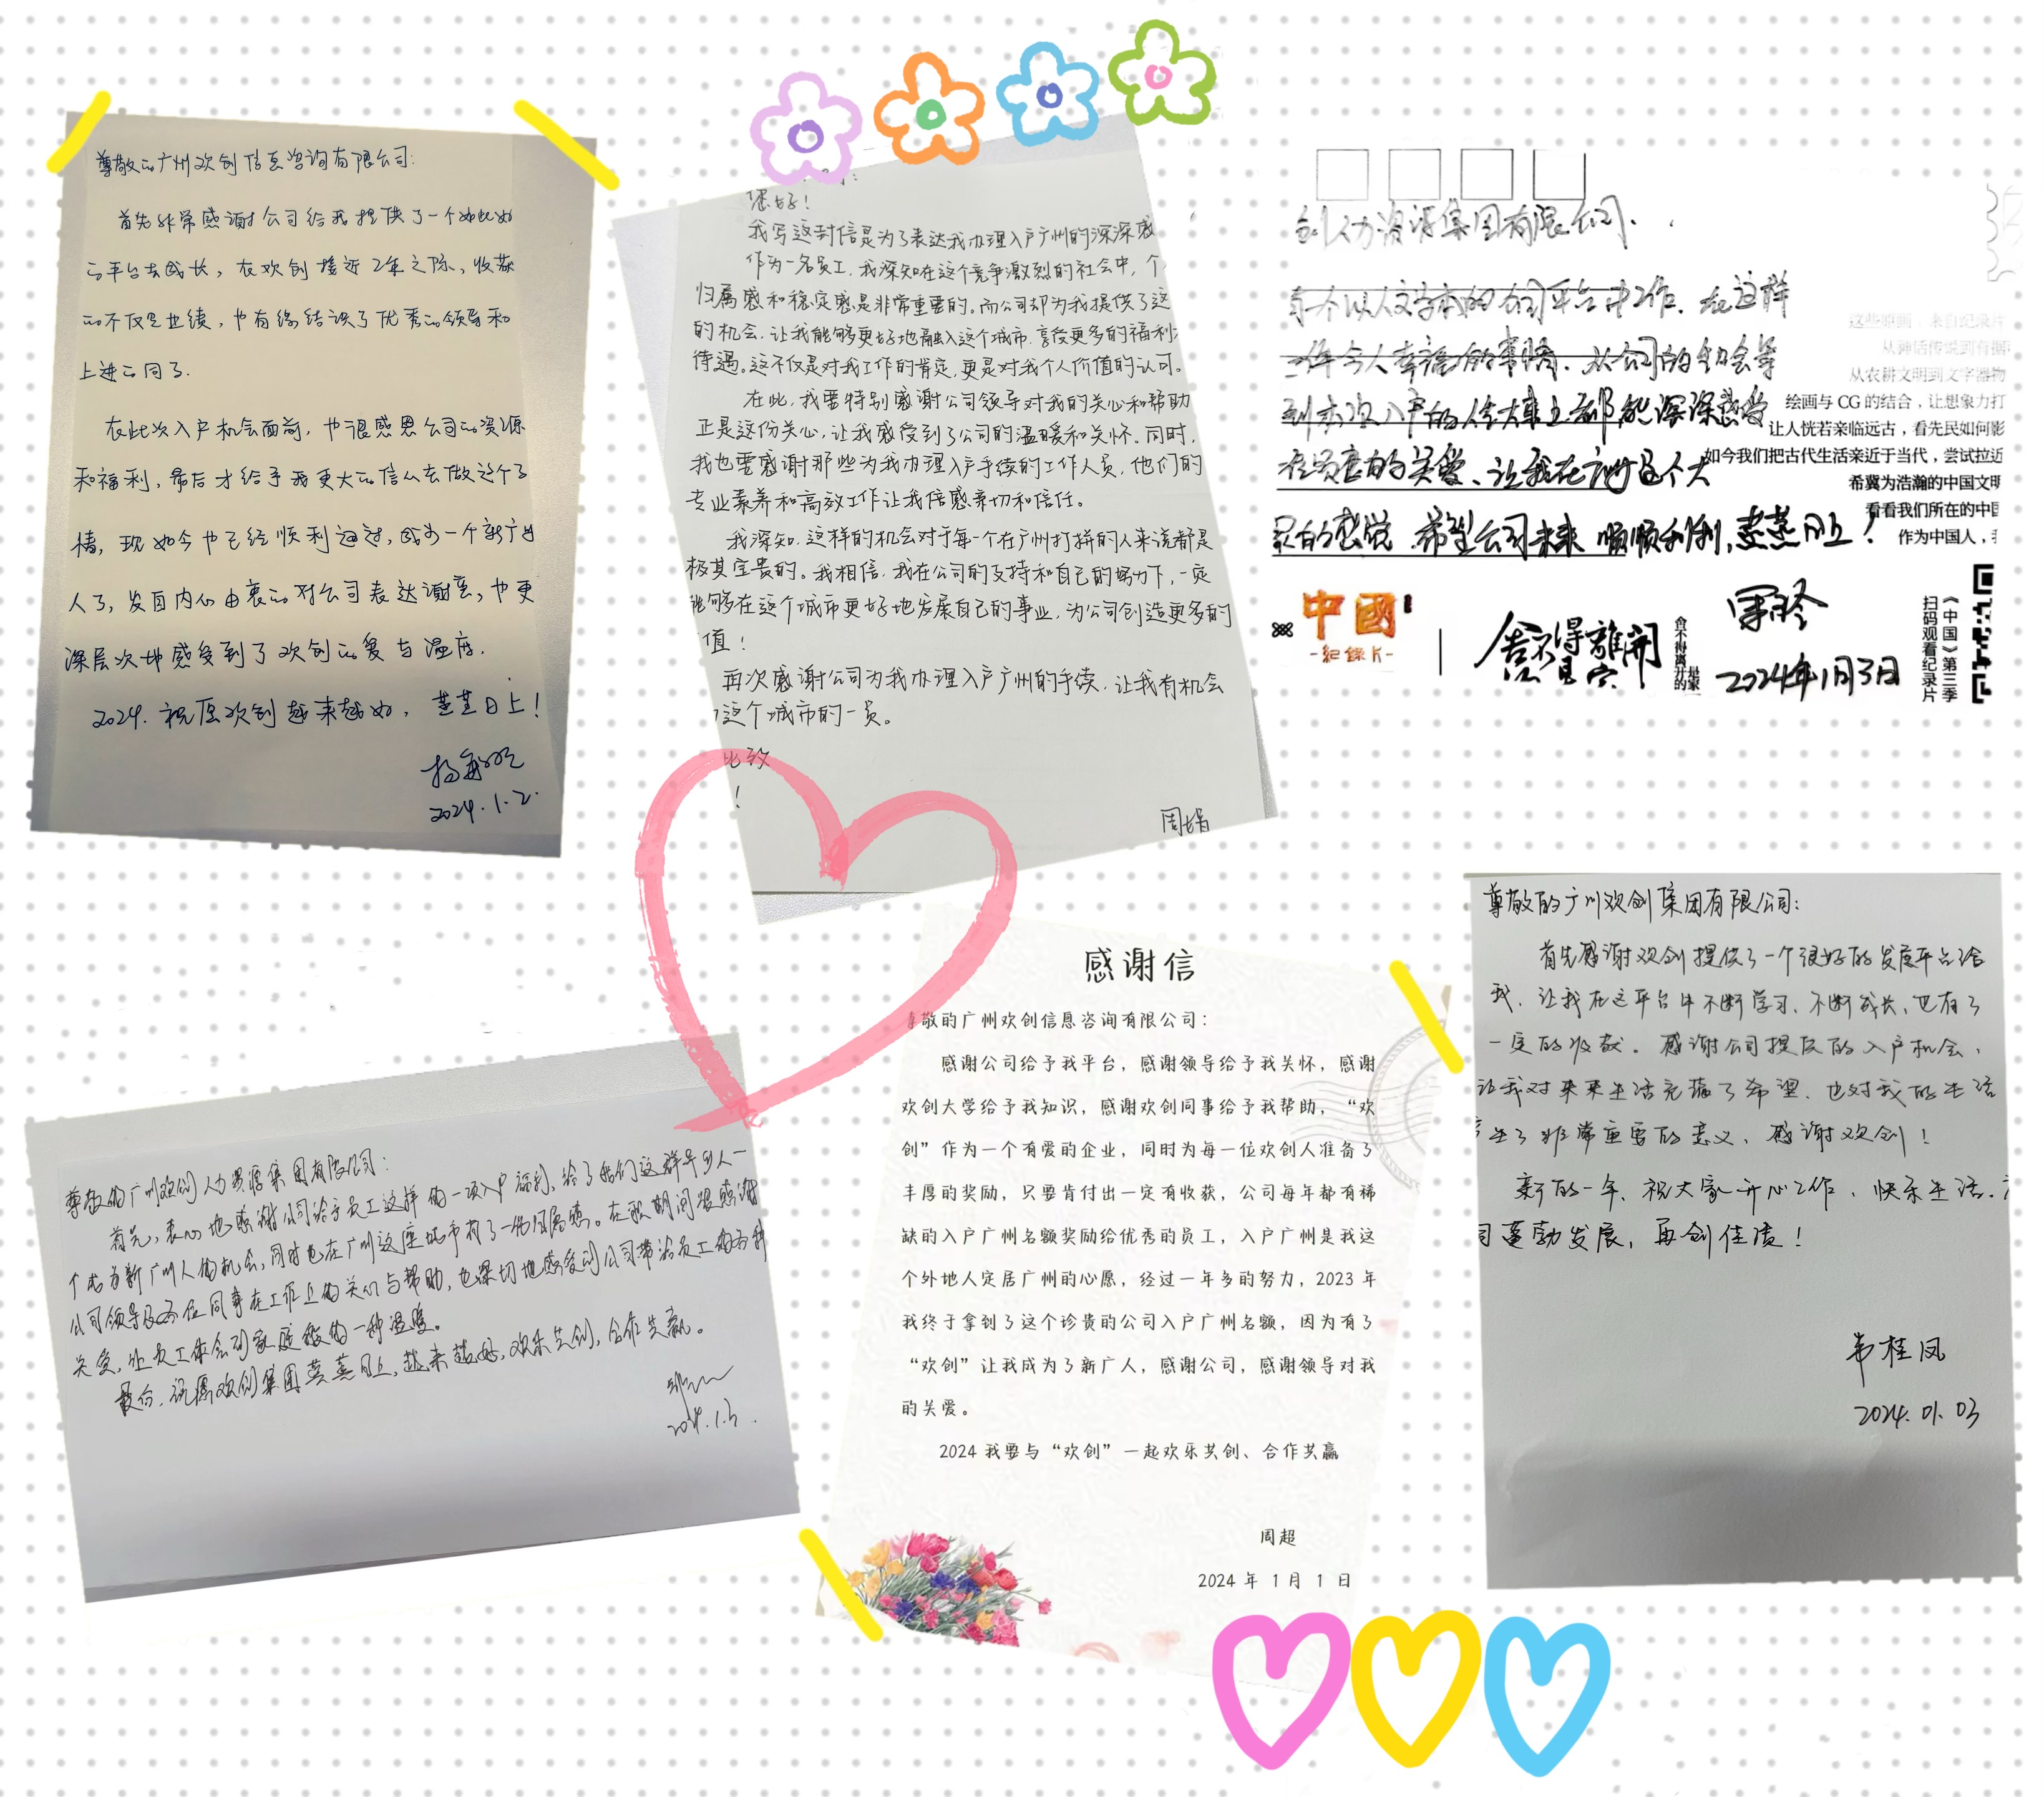 尊敬的广州欢创信息咨询有限公司:
首先非常感谢公司给我提供了一个如此好
的平台去成长，在欢创接近2年之际，收获
的不仅是业绩，也有缘结识了优秀的领导和
上进的同事.
在此次入户机会面前，也很感恩公司的资源
和福利，最后才给予我更大的信心去做这个事
情，现如今也已经顺利通过，成为一个新广州
人了，发自内心由衷的对公司表达谢意，也更
深层次地感受到了欢创的爱与温度.
2024.祝愿欢创越来越好，蒸蒸日上!
2024.1.2.
您好!
我写这封信是为了表达我办理入户广州的深深感
作为一名员工,我深知在这个竞争激烈的社会中,个
归属感和稳定感是非常重要的。而公司却为我提供了这
的机会,让我能够更好地融入这个城市,享受更多的福利
待遇。这不仅是对我工作的肯定,更是对我个人价值的认可。
在此,我要特别感谢公司领导对我的关心和帮助
正是这份关心,让我感受到了公司的温暖和关怀。同时,
我也要感谢那些为我办理入户手续的工作人员,他们的
专业素养和高效工作让我倍感亲切和信任。
我深知,这样的机会对于每一个在广州打拼的人来说都是
极其宝贵的。我相信,我在公司的支持和自己的努力下,一定
能够在这个城市更好地发展自己的事业,为公司创造更多的
值!
再次感谢公司为我办理入户广州的手续,让我有机会
这个城市的一员。
此致
!
周娟
创人力资源集团有限公司.
以人文为本的公司平台中工作.在这样
件令人幸福的事情.从公司的年会等
到本次入户的人生大事上都能深深感受
在员工的关爱、让我在广州这个大
的感觉.希望公司未来 顺顺利利,蒸蒸日上!
2024年1月3日
这些原画，来自纪录片
从神话传说到有据
从农耕文明到文字器物
绘画与 CG 的结合，让想象力打
让人恍若亲临远古，看先民如何影
如今我们把古代生活亲近于当代，尝试拉近
希冀为浩瀚的中国文明
看看我们所在的中国
作为中国人，
中國
-纪录片-
舍不得離開
舍不得离开的
《中国》第三季
扫码观看纪录片
尊敬的广州欢创人力资源集团有限公司:
首先,衷心地感谢公司给予员工这样的一项入户福利,给了我们这群异乡人一
个成为新广州人的机会,同时也在广州这座城市有了一份归属感。在职期间很感谢
公司领导及各位同事在工作上的关心与帮助,也深切地感受到公司带给员工的
关爱,让员工体会到家庭般的一种温暖。
最后,祝愿欢创集团蒸蒸日上,越来越好,欢乐共创,合作共赢。
感谢信
尊敬的广州欢创信息咨询有限公司：
感谢公司给予我平台，感谢领导给予我关怀，感谢
欢创大学给予我知识，感谢欢创同事给予我帮助，“欢
创”作为一个有爱的企业，同时为每一位欢创人准备了
丰厚的奖励，只要肯付出一定有收获，公司每年都有稀
缺的入户广州名额奖励给优秀的员工，入户广州是我这
个外地人定居广州的心愿，经过一年多的努力，2023 年
我终于拿到了这个珍贵的公司入户广州名额，因为有了
“欢创”让我成为了新广人，感谢公司，感谢领导对我
的关爱。
2024 我要与“欢创”一起欢乐共创、合作共赢
周超
2024 年 1 月 1 日
尊敬的广州欢创集团有限公司:
首先感谢欢创提供了一个很好的发展平台给
我、让我在这平台中不断学习、不断成长,也有了
一定的收获。感谢公司提供的入户机会,
让我对未来生活充满了希望.也对我的生活
生了非常重要的意义、感谢欢创!
新的一年、祝大家开心工作、快乐生活.
司蓬勃发展,再创佳绩!
韦桂凤
2024.01.03